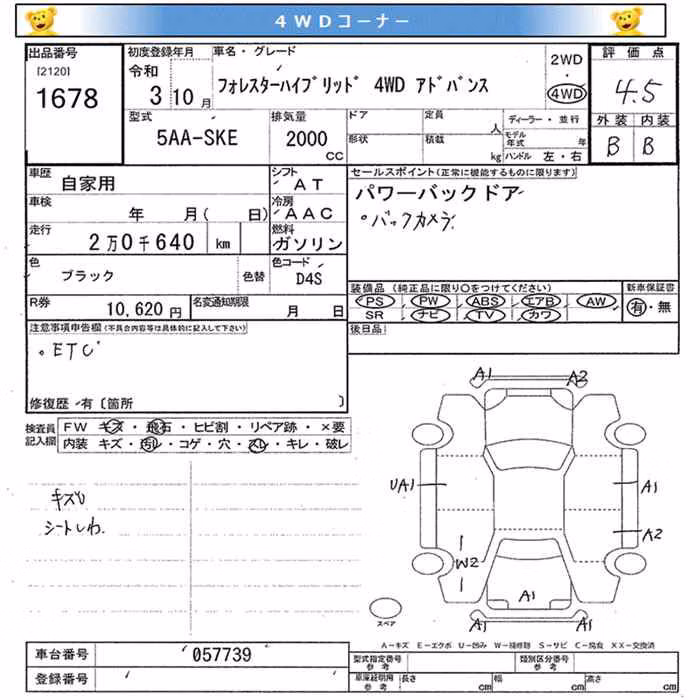 4WDコーナー
出品番号 初度登録年月 車名・グレード 2WD 評価点
[2120] 令和 ・
1678 3 10月 フォレスターハイブリッド 4WD アドバンス 4WD 4.5
型式 排気量 ドア 定員 人 ディーラー・並行 外装 内装
5AA-SKE 2000 CC 形状 積載 kg モデル年式 年 B B
ハンドル 左・右
車歴 自家用 シフト AT セールスポイント(正常に機能するものに限ります)
車検 年 月( 日) 冷房 AAC パワーバックドア
走行 2万0千640 km 燃料 ガソリン 。バックカメラ
色 ブラック 色替 色コード D4S
装備品 (純正品に限り○をつけてください) 新車保証書
R券 10,620円 名変通知期限 月 日 PS PW ABS エアB AW 有・無
SR ナビ TV カワ
注意事項申告欄(不具合内容等は具体的に記入して下さい) 後日品
。ETC
修復歴・有〔箇所 〕
検査員記入欄 FW キズ・飛石・ヒビ割・リペア跡・×要
内装 キズ・汚レ・コゲ・穴・スレ・キレ・破レ
A1 A2
キズ
シートしわ
UA1 A1
A2
W2
A1
スペア
A1 A1
A-キズ E-エクボ U-凹み W-補修跡 S-サビ C-腐食 XX-交換済
車台番号 057739 型式指定番号 参考 類別区分番号 参考
登録番号 車庫証明用 参考 長さ cm 幅 cm 高さ cm